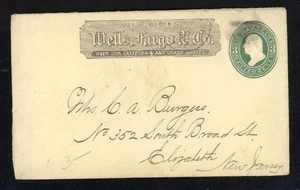 Wells, Fargo & Co.
OVER OUR CALIFORNIA AND COAST ROUTES
3 3
Mrs. C. A. Burgess.
No 352 South Broad St
Elizabeth
New Jersey